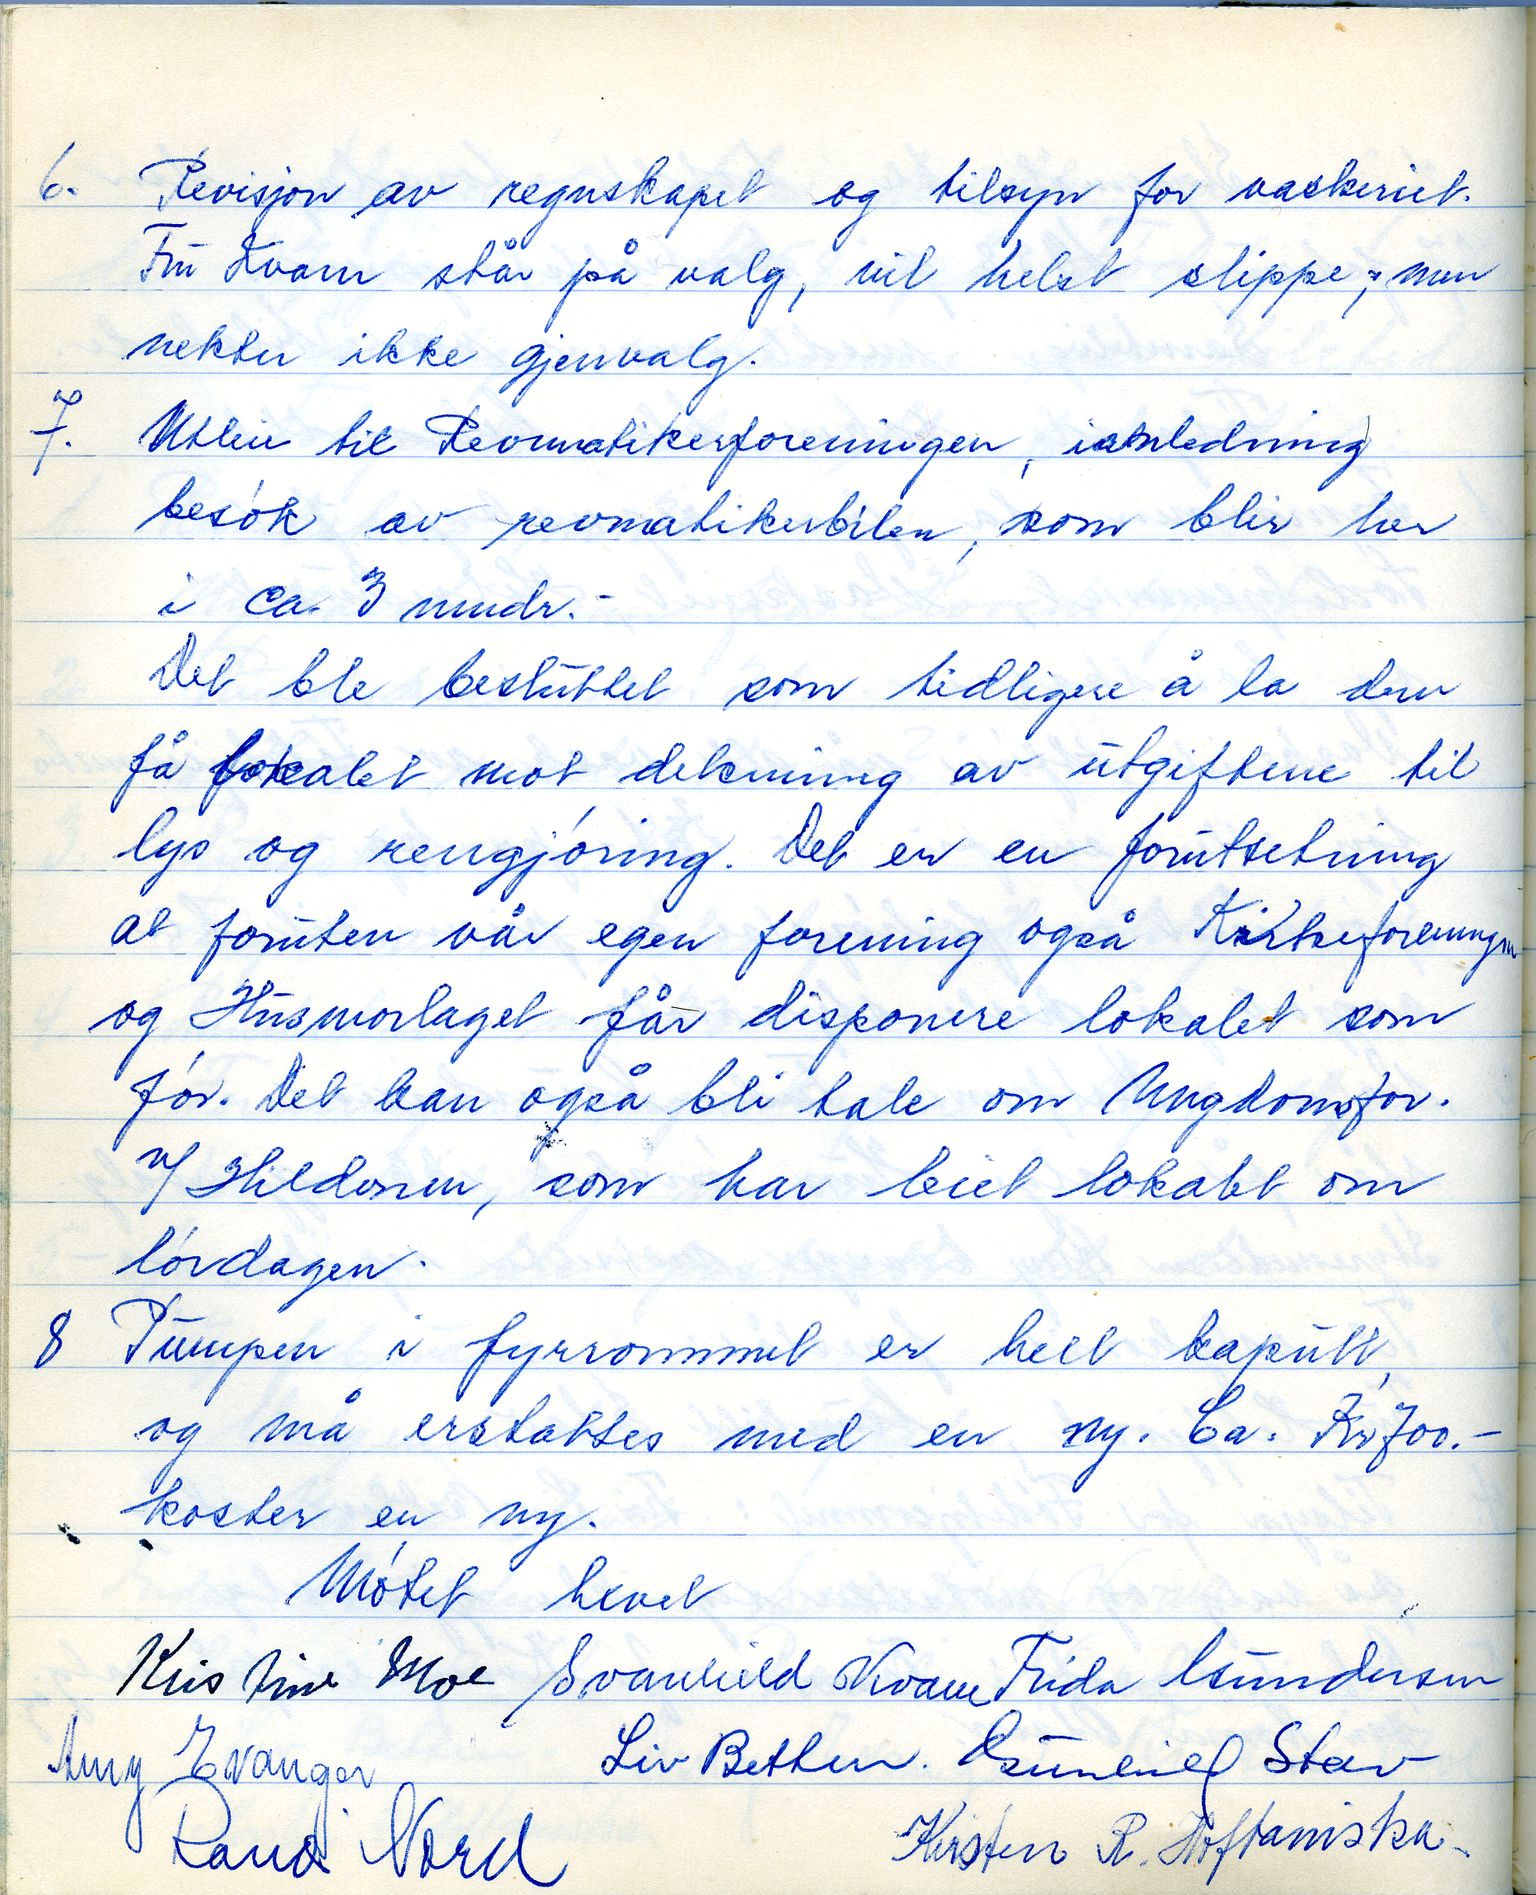 6. Revisjon av regnskapet og tilsyn for vaskeriet.
Frü Kvam står på valg, vil helst slippe, men
nekter ikke gjenvalg.
7. Utleie til Revmatikerforeningen, i anledning
besök av revmatikerbilen, som blir her
i ca. 3 mndr.-
Det ble beslüttet som tidligere å la dem
få lokalet mot dekning av ütgiftene til
lys og rengjöring. Det er en forütsetning
at forüten vår egen forening også Kirkeforeningen
og Hüsmorlaget får disponere lokalet som
för. Det kan også bli tale om Ungdomsfor.
v/ Hildonen, som har leiet lokalet om
lördagen.
8 Pümpen i fyrrommet er helt kapütt,
og må erstattes med en ny. Ca. Kr 700.-
koster en ny.
Mötet hevet
Kristine Moe Svanhild Kvam Frida Gündersen
Amy Evanger Liv Bethen. Günhild Stav
Randi Nord Kirsten R. Hoftaniska